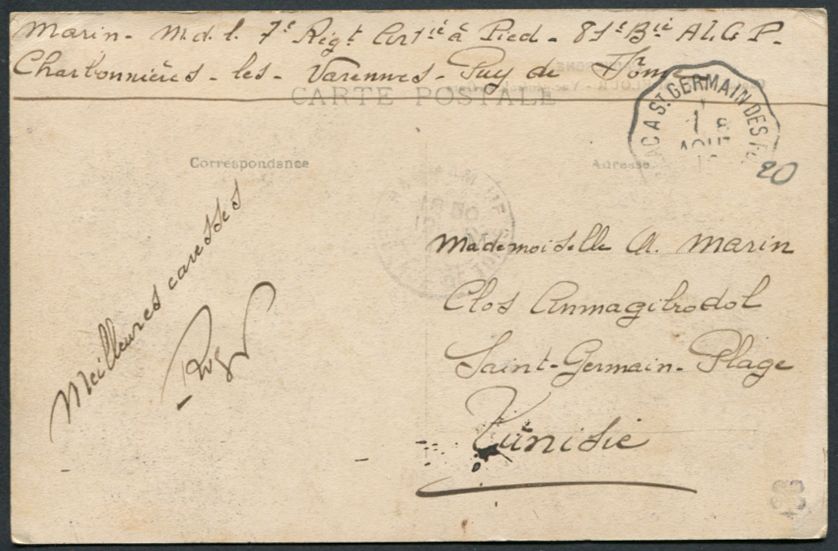 Marin - M.d.l. 7e Rigt Artie à Pied - 81e Bie ALGP -
Charbonnières - les - Varennes - Puy de Dôme
CARTE POSTALE
Correspondance
Adresse
AC A ST GERMAIN DES FO
1 8
AOUT
20
Mademoiselle A. Marin
Clos Anmagibrodol
Saint-Germain-Plage
Tunisie
Meilleures caresses
Rog